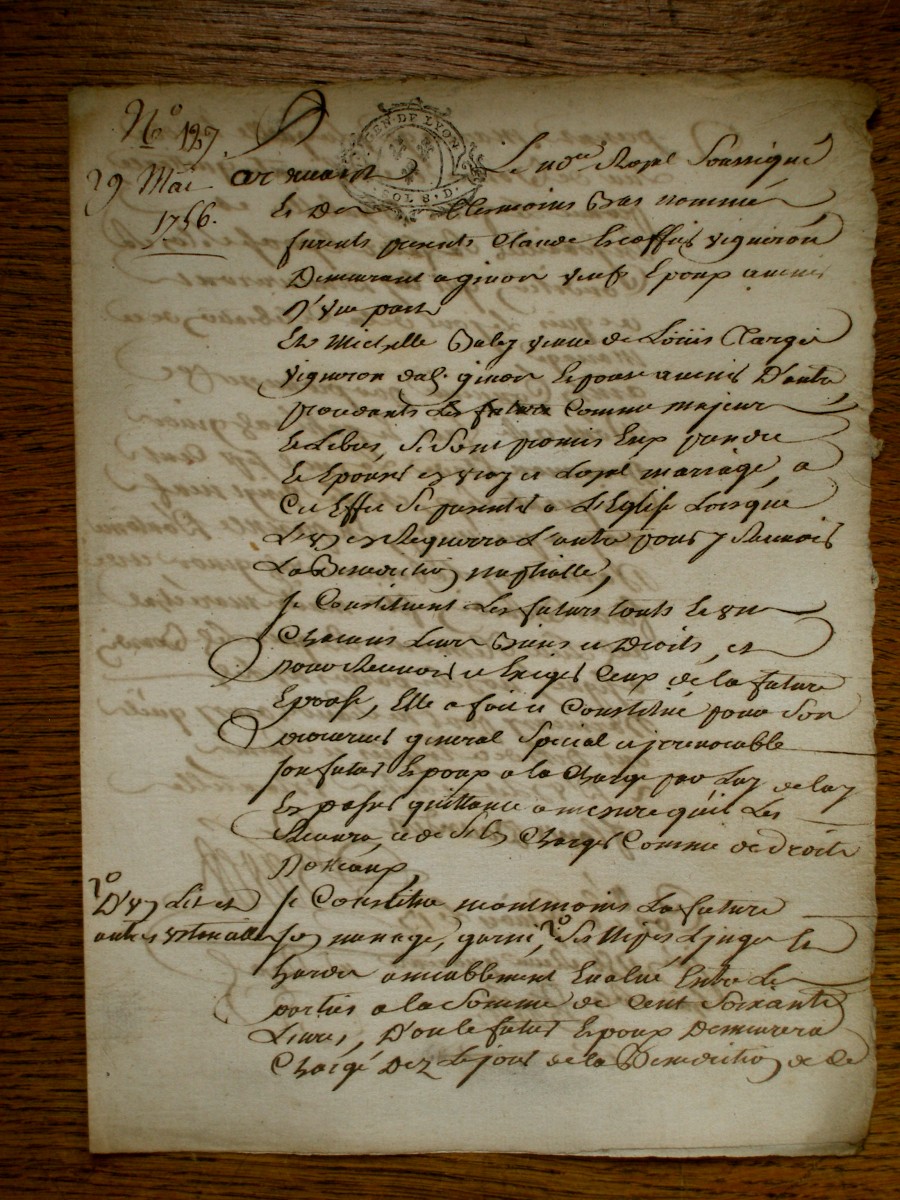 No 127.
29 Mai
1756.
GEN DE LYON
SOL 8. D.
Par devant Le no.re Royal Soussigné
Et Des temoins bas nommés
furents presents Claude vigneron
Demeurant a givor veuf Epoux avenir
D'Une part
Et Michelle veuve de Loüis
vigneron dud. givor Epouse avenir D'autre
procedants Les futurs Comme majeurs
Et Libres, Se Sont promis Eux prendre
Et Epouser en vray et Loyal mariage, a
Cet Effet Se presenter a L'Eglise Lorsque
L'un en Requerra L'autre pour y Recevoir
La Benediction nuptialle,
Se Constituent Les futurs touts Les
Chacuns Leurs Biens et Droits, et
pour Recevoir et Exiger Ceux de la future
Epouse, Elle a fait et Constitué pour Son
procureur general Special et irrevocable
Son futur Epoux a la Charge par Luy de luy
En passer quittance a mesure qu'il Les
Recevra, et de Les Charges Comme de Droits
Dotteaux,
2o
D'un Lit et
autres ustencilles
Se Constitue neantmoins La future
Son menage, garni, 2o Ses nipes Linges et
hardes amiablement Evalué Entre Les
parties a la Somme de Cent Soixante
Livres, Dont le futur Epoux Demeurera
Chargé Dez Le jour de la Benediction de Le